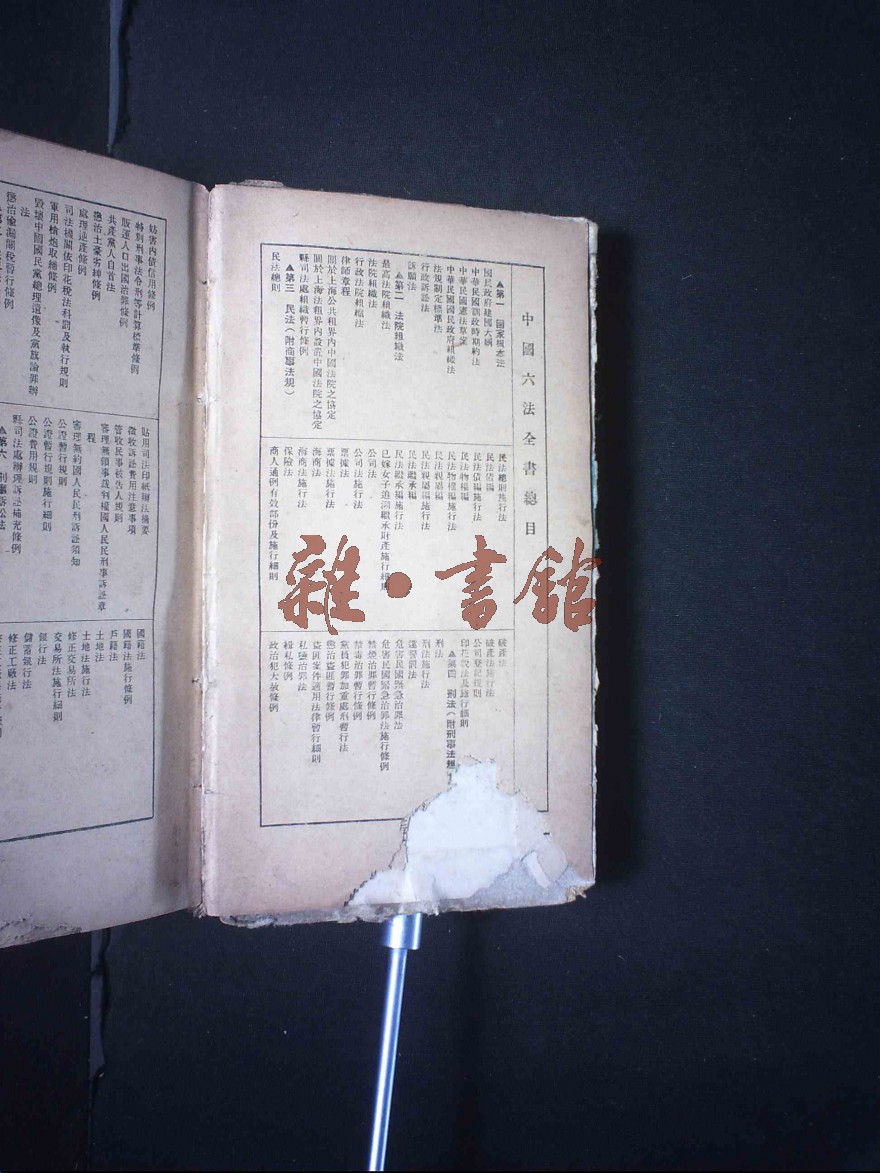 中國六法全書總目
▲第一 國家根本法
國民政府建國大綱
中華民國訓政時期約法
中華民國憲法草案
中華民國國民政府組織法
法規制定標準法
行政訴訟法
訴願法
▲第二 法院組織法
最高法院組織法
法院組織法
行政法院組織法
律師章程
關於上海公共租界內中國法院之協定
關於上海法租界內設置中國法院之協定
縣司法處組織暫行條例
▲第三 民法（附商事法規）
民法總則
民法總則施行法
民法債編
民法債編施行法
民法物權編
民法物權編施行法
民法親屬編
民法親屬編施行法
民法繼承編
民法繼承編施行法
已嫁女子追溯繼承財產施行細則
公司法
公司法施行法
票據法
票據法施行法
海商法
海商法施行法
保險法
商人通例有效部份及施行細則
破產法
破產法施行法
公司登記規則
印花稅法及施行細則
▲第四 刑法（附刑事法規
刑法
刑法施行法
違警罰法
危害民國緊急治罪法
危害民國緊急治罪法施行條例
禁煙治罪暫行條例
禁毒治罪暫行條例
黨員犯罪加重處刑暫行法
懲治盜匪暫行條例
盜匪案件適用法律暫行細則
私鹽治罪法
緝私條例
政治犯大赦條例
妨害內債信用條例
特別刑事法令刑等計算標準條例
販運人口出國治罪條例
共產黨人自首法
懲治土豪劣紳條例
處理逆產條例
司法機關依印花稅法科罰及執行規則
軍用槍炮取締條例
毀壞中國國民黨總理遺像及黨旗論罪辦
法
懲治偷漏關稅暫行條例
貼用司法印紙辦法摘要
徵收訴訟費用注意事項
管收民事被告人規則
審理無領事裁判權國人民民刑事訴訟章
程
審理無約國人民民刑訴訟須知
公證暫行規則
公證暫行規則施行細則
公證費用規則
縣司法處辦理訴訟補充條例
▲第六 刑事訴訟法
國籍法
國籍法施行條例
戶籍法
土地法
土地法施行法
修正交易所法
交易所法施行細則
銀行法
儲蓄銀行法
修正工廠法
雜·書館